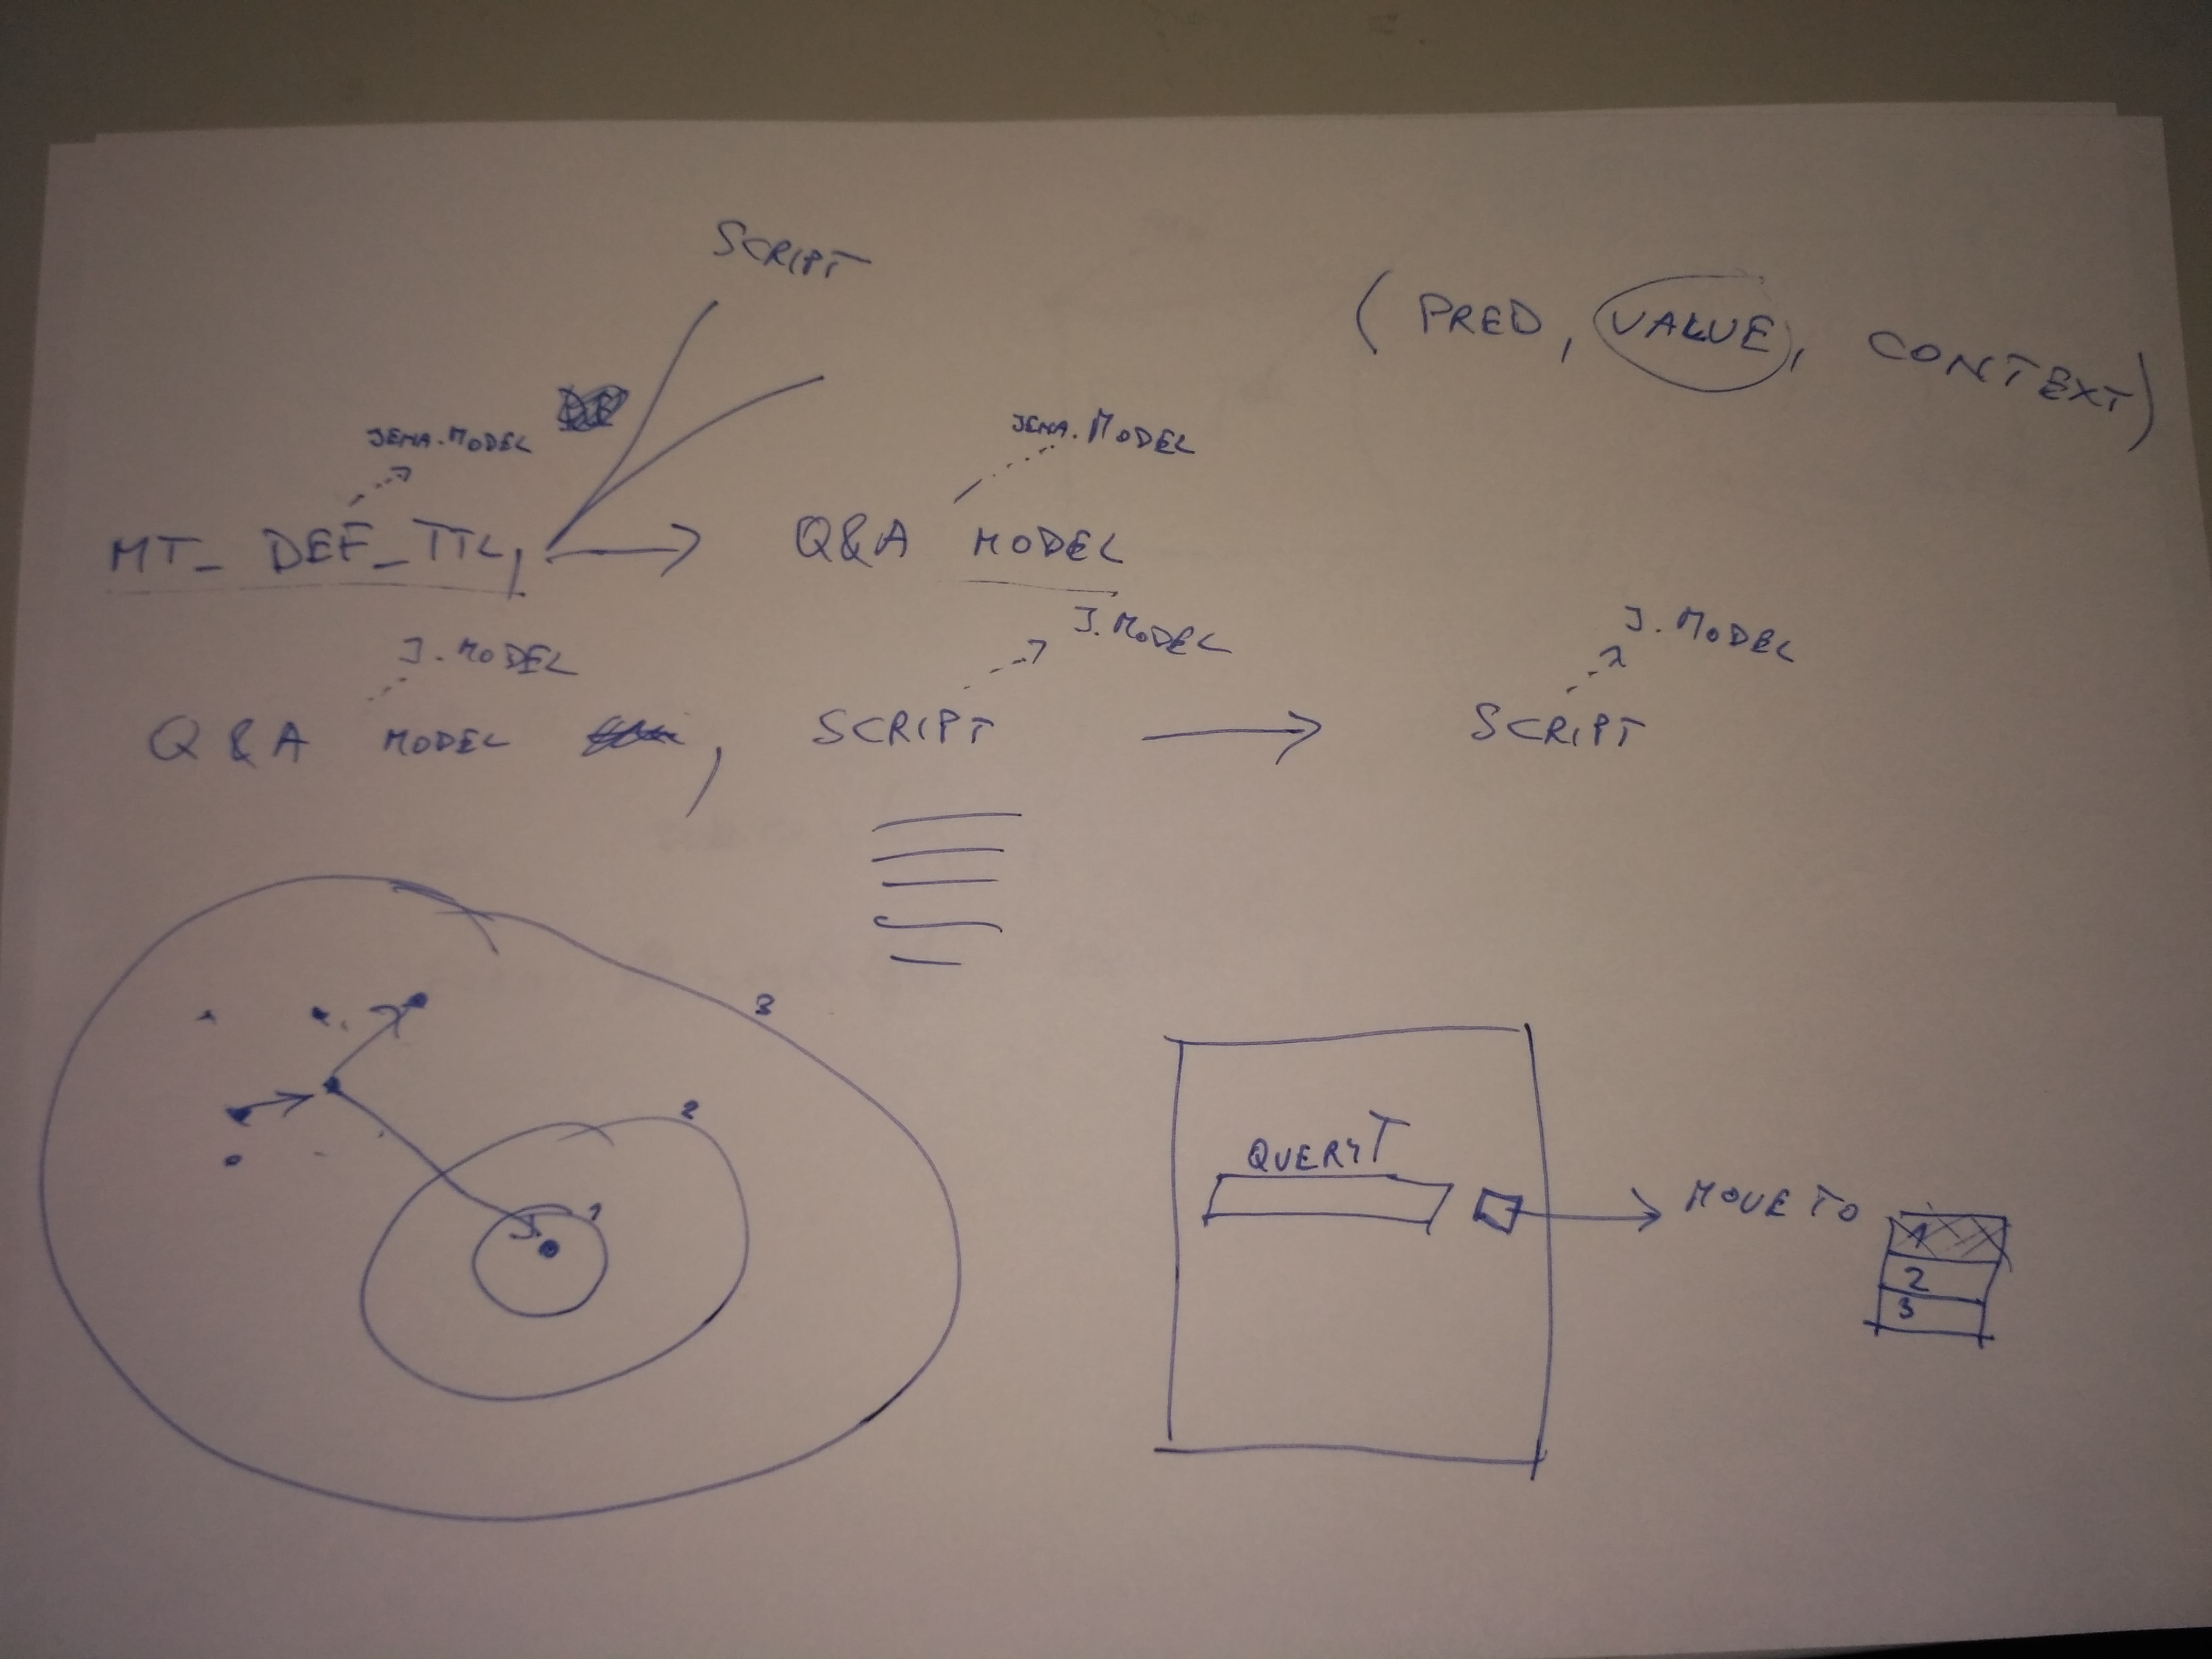 SCRIPT
( PRED, VALUE, CONTEXT )
JENA.MODEL
JENA.MODEL
MT_ DEF_TTL, → Q&A MODEL
J. MODEL
J. MODEL
J. MODEL
Q&A MODEL , SCRIPT → SCRIPT
3
2
1
QUERYT
MOVE TO
1
2
3